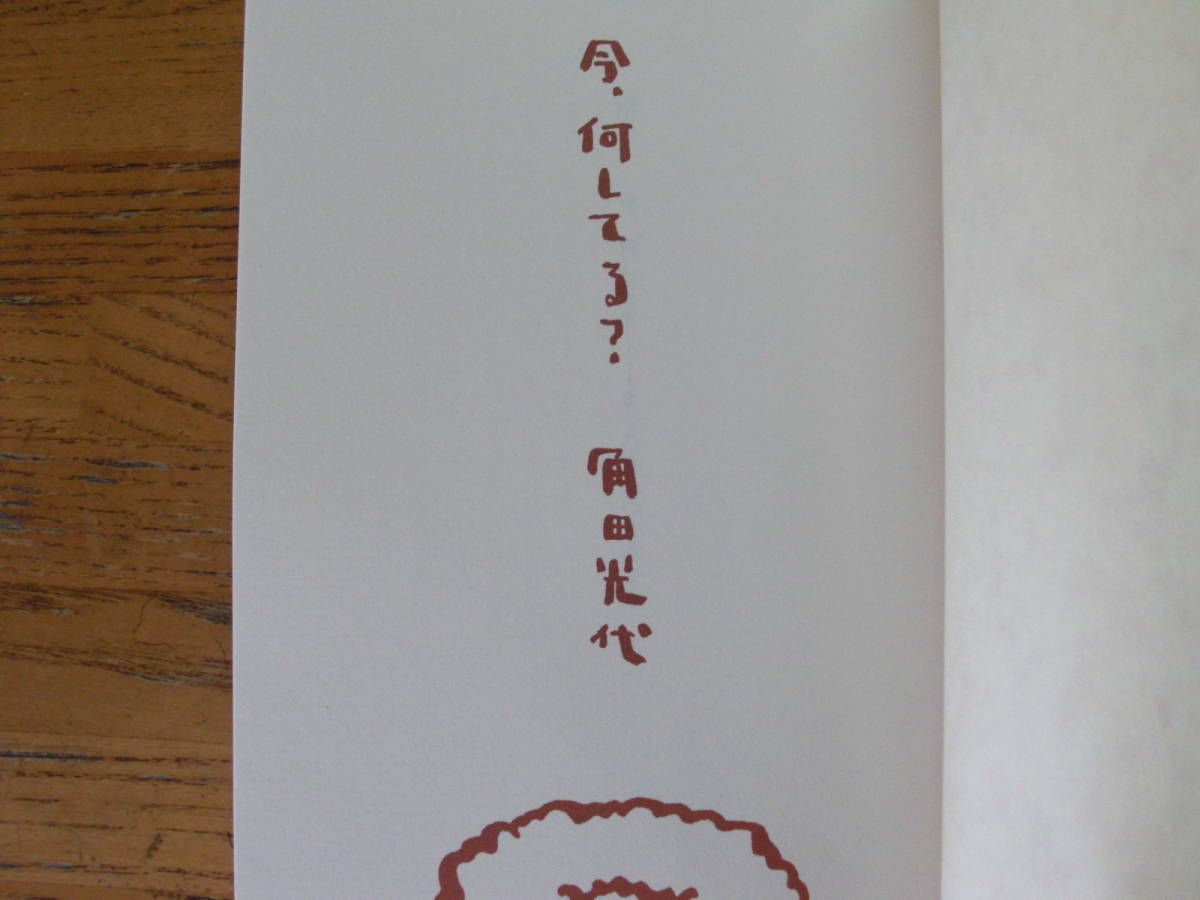 今、何してる？
角田光代